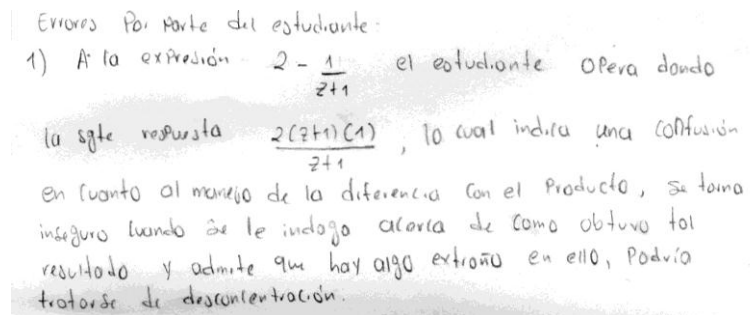 Errores Por parte del estudiante.
1) A la expresión 2 - 1/(z+1) el estudiante opera dando
la sgte respuesta 2(z+1)(1)/(z+1), lo cual indica una confusión
en cuanto al manejo de la diferencia con el producto, se torna
inseguro cuando se le indaga acerca de como obtuvo tal
resultado y admite que hay algo extraño en ello, Podría
tratarse de desconcentración.